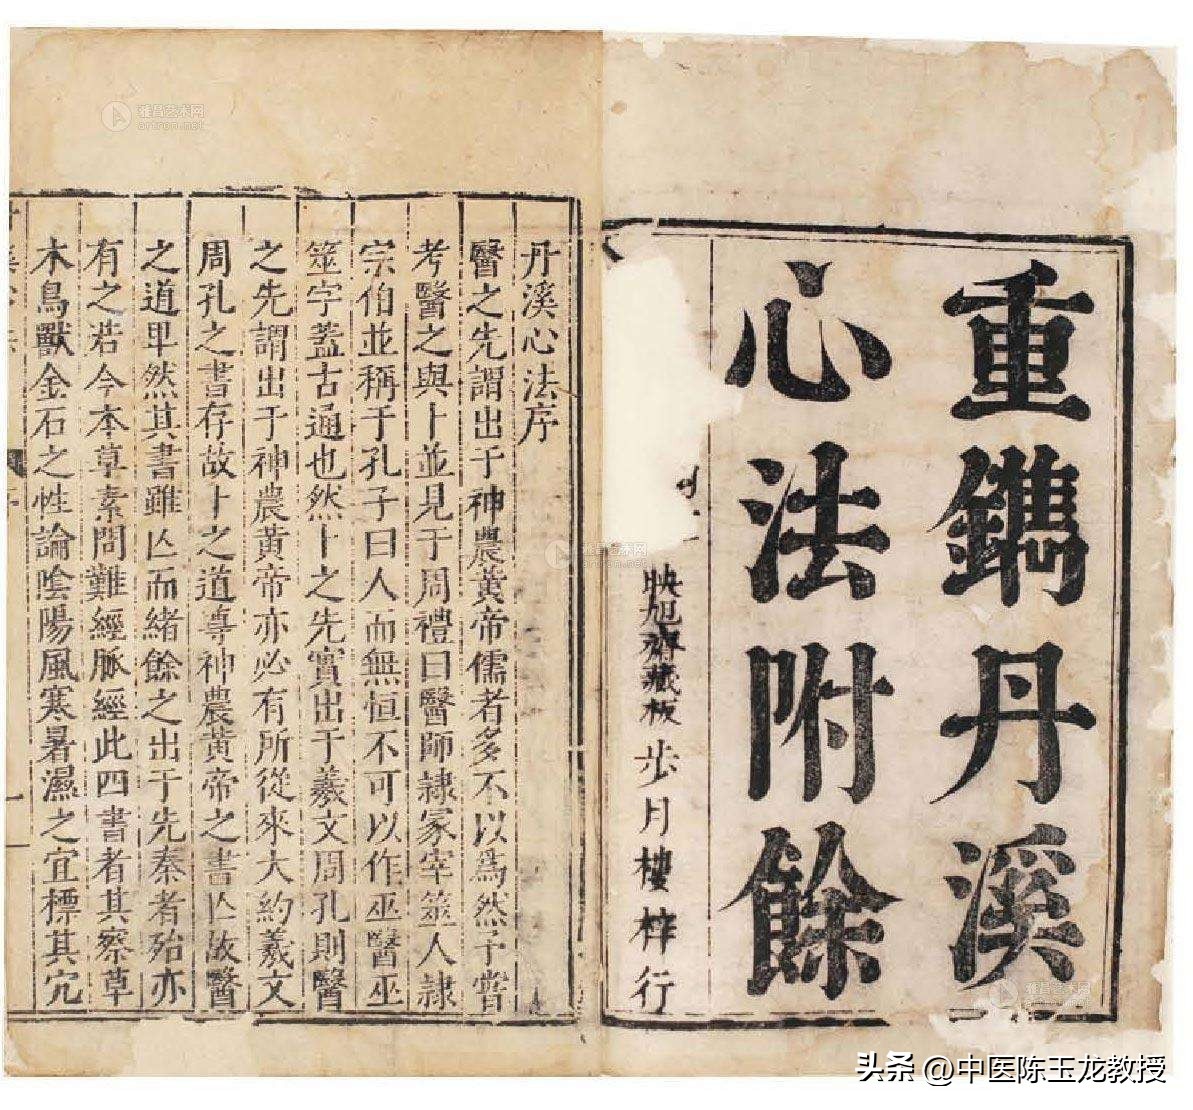 重鐫丹溪
心法附餘
映旭齋藏板
步月樓梓行
丹溪心法序
醫之先謂出于神農黃帝儒者多不以爲然予嘗
考醫之與卜並見于周禮曰醫師隷冢宰筮人隷
宗伯並稱于孔子曰人而無恒不可以作巫醫巫
筮字蓋古通也然卜之先實出于羲文周孔則醫
之先謂出于神農黃帝亦必有所從來大約羲文
周孔之書存故卜之道尊神農黃帝之書亾故醫
之道卑然其書雖亾而緒餘之出于先秦者殆亦
有之若今本草素問難經脈經此四書者其察草
木鳥獸金石之性論陰陽風寒暑濕之宜標其穴
雅昌艺术网
artron.net
头条 @中医陈玉龙教授